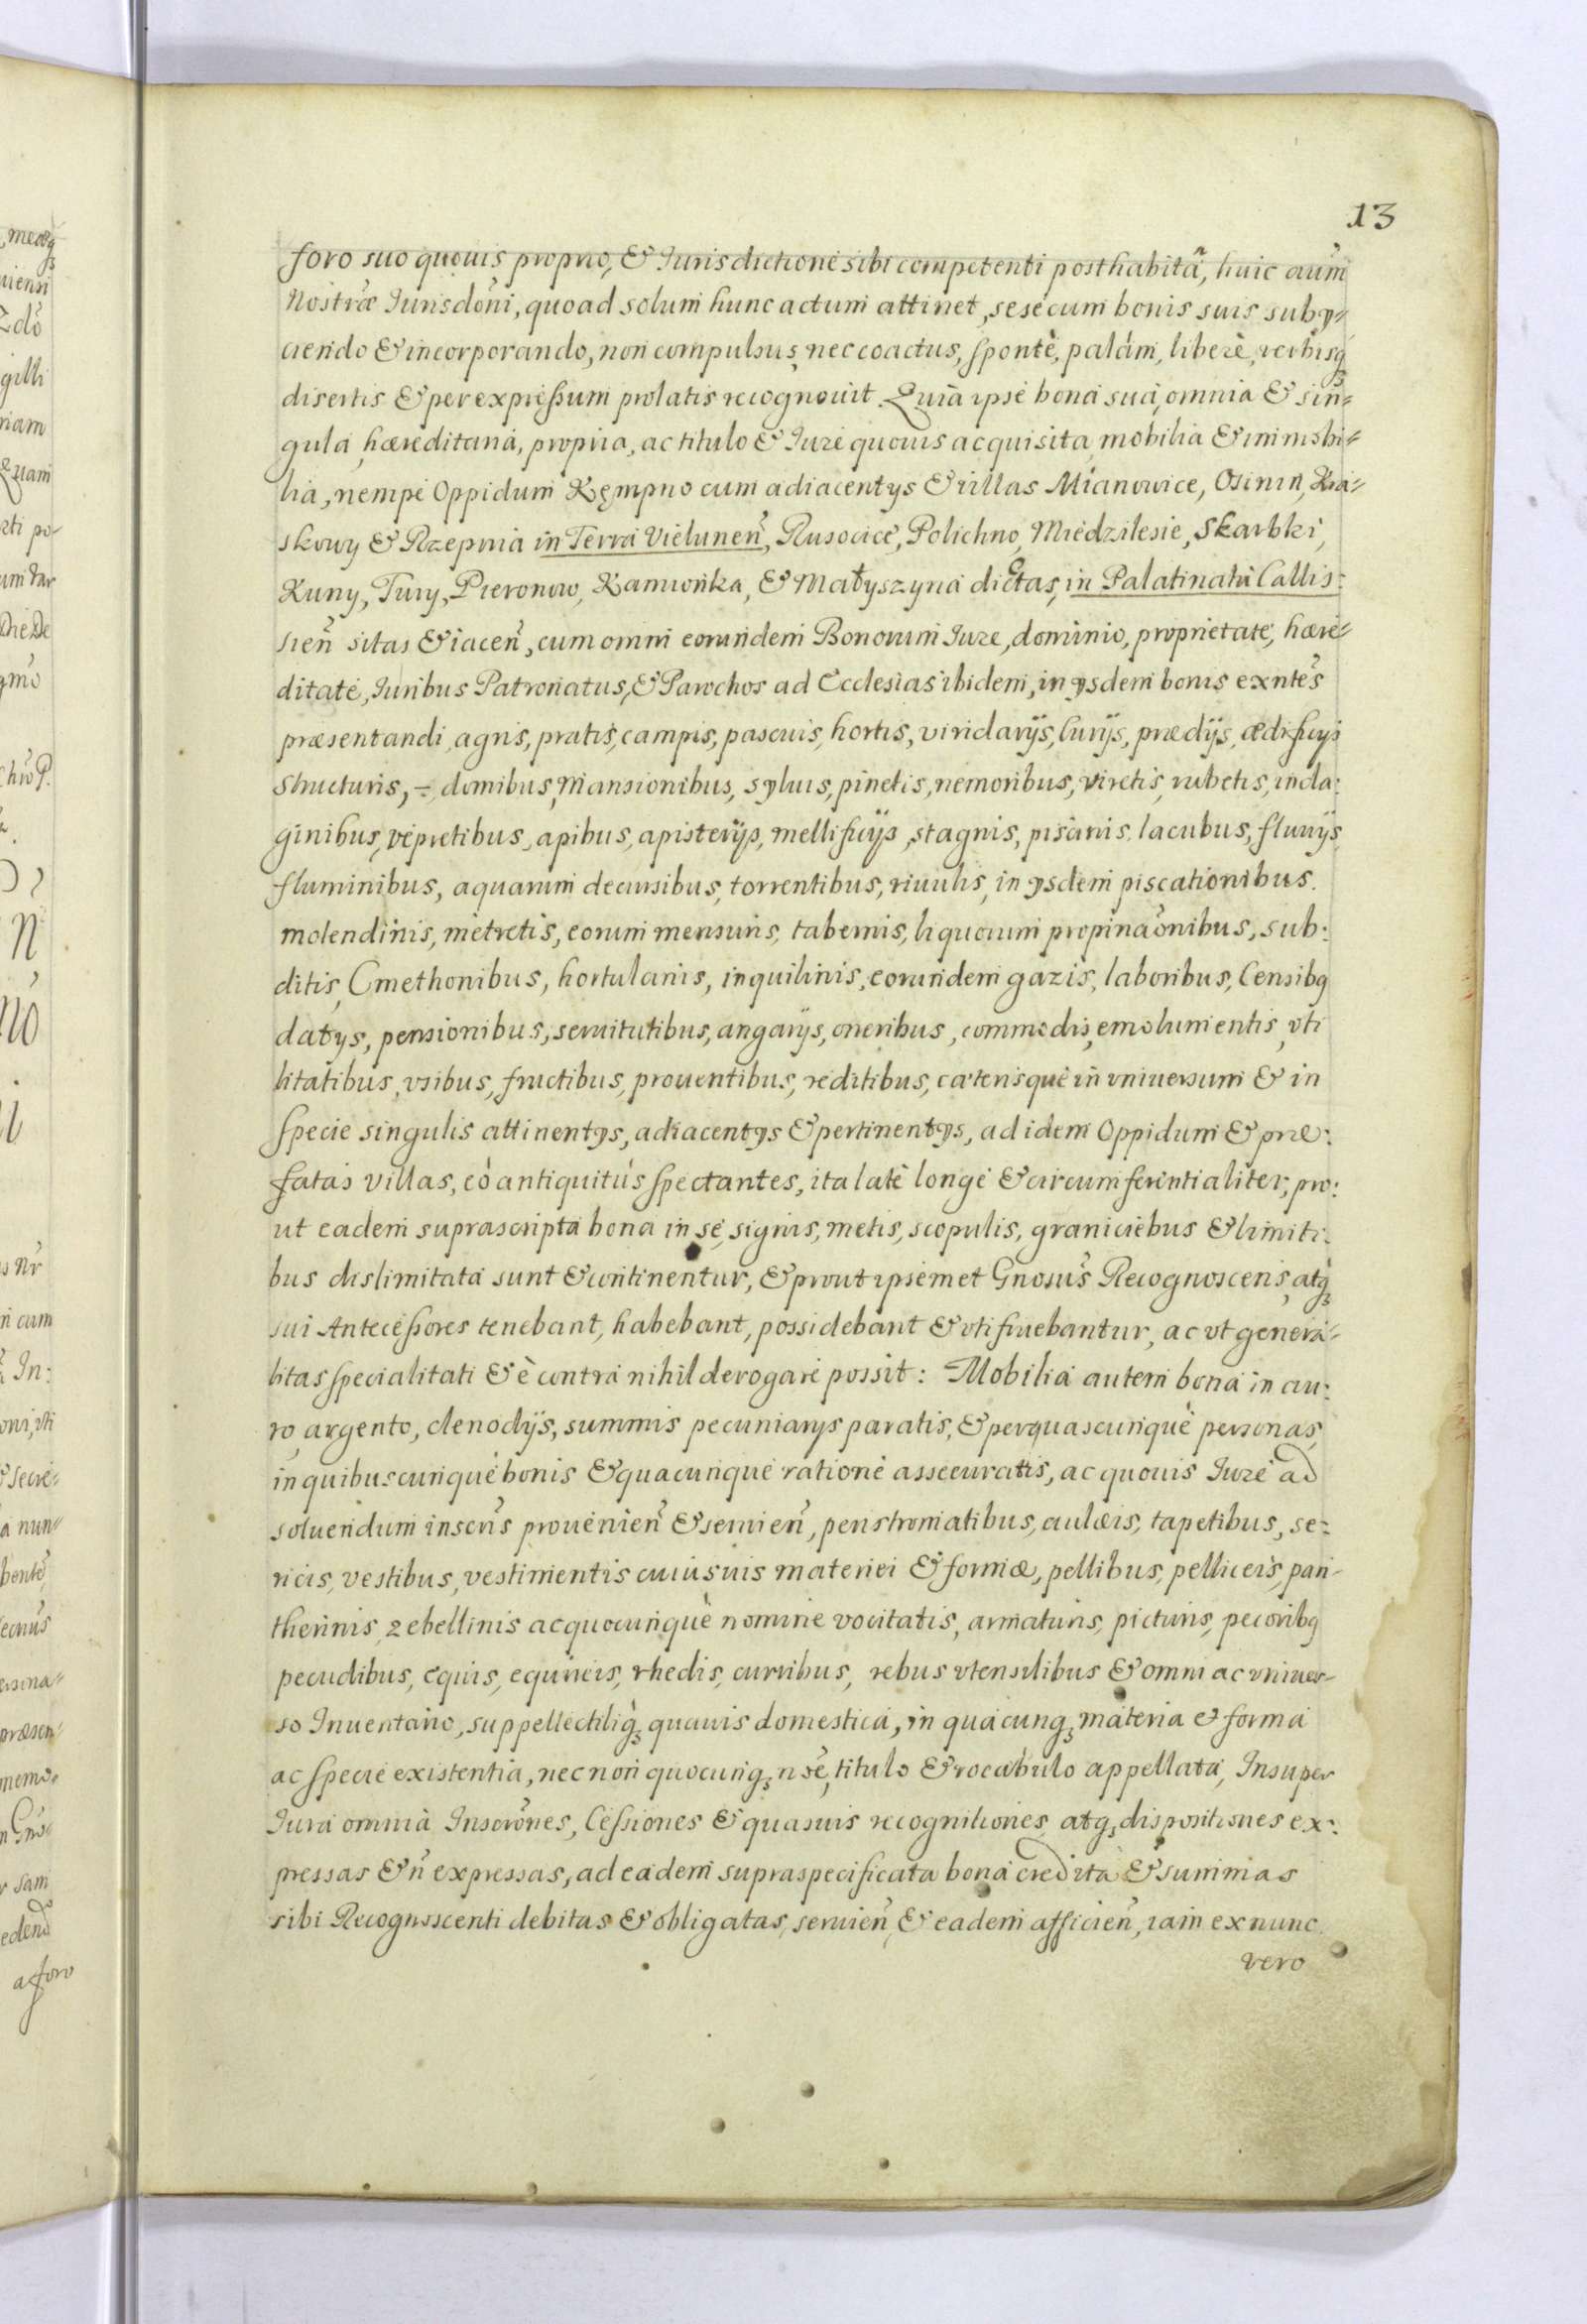 13
foro suo quouis proprio, & Iurisdictione sibi competenti posthabitâ, huic aũm
Nostræ Iurisdõni, quoad solum hunc actum attinet, sese cum bonis suis subÿ=
ciendo & incorporando, non compulsus, nec coactus, spontè, palám, liberè, verbisq3
disertis & per expreßum prolatis recognouit. Quia ipse bona sua, omnia & sin=
gula, hæreditaria, propria, ac titulo & Iure quouis acquisita, mobilia & immobi=
lia, nempe Oppidum Kęmpno cum adiacentÿs & villas Mianowice, Osinÿ, Kra=
skowy & Rzepnia in Terra Vielunen̄, Rusocice, Polichno, Miedzilesie, Skarbki,
Kuny, Tury, Pieronow, Kamionka, & Małyszyna dictas, in Palatinatu Callis:
sien̄ sitas & iacen̄, cum omni eorundem Bonorum Iure, dominio, proprietate, hære=
ditate, Iuribus Patronatus, & Parochos ad Ecclesias ibidem, in ÿsdem bonis exñtes
præsentandi, agris, pratis, campis, pascuis, hortis, viridarÿs, Curÿs, prædÿs, ædificÿs
structuris, ÷ domibus, Mansionibus, syluis, pinetis, nemoribus, viretis, rubetis, inda:
ginibus, vepretibus, apibus, apisterÿs, mellificÿs, stagnis, piscinis, lacubus, fluuÿs
fluminibus, aquarum decursibus, torrentibus, riuulis, in ÿsdem piscationibus.
molendinis, metretis, eorum mensuris, tabernis, liquorum propinaõnibus, sub:
ditis, Cmethonibus, hortulanis, inquilinis, eorundem gazis, laboribus, Censibq
datÿs, pensionibus, seruitutibus, angarÿs, oneribus, commodis, emolumentis, vti
litatibus, vsibus, fructibus, prouentibus, reditibus, cæterisque in vniuersum & in
specie singulis attinentÿs, adiacentÿs & pertinentÿs, ad idem Oppidum & præ:
fatas villas, eò antiquitùs spectantes, ita latè longe & circumferentialiter, pro:
ut eadem suprascripta bona in se, signis, metis, scopulis, graniciebus & limiti:
bus dislimitata sunt & continentur, & prout ipsemet Gnosus̃ Recognoscens, atq3
sui Anteceßores tenebant, habebant, possidebant & vtifruebantur, ac vt genera=
litas specialitati & è contra nihil derogare possit: Mobilia autem bona in au:
ro, argento, clenodÿs, summis pecuniarÿs paratis, & per quascunque personas,
in quibuscunque bonis & quacunque ratione assecuratis, ac quouis Iure ad
soluendum inseru̅s prouenien̄ & seruien̄, peristromatibus, aulæis, tapetibus, se=
ricis, vestibus, vestimentis cuiusuis materiei & formæ, pellibus, pelliceis, pan=
therinis, zebellinis ac quocunquè nomine vocitatis, armaturis, picturis, pecoribq
pecudibus, equis, equireis, rhedis, curribus, rebus vtensilibus & omni ac vniuer=
so Inuentario, suppellectiliq3 quauis domestica, in quacunq3 materia & forma
ac specie existentia, nec non quocunq3 nõe, titulo & vocabulo appellata, Insuper
Iura omnia Inscrõnes, Ceßiones & quasuis recognitiones atq3 dispositiones ex:
pressas & n̄ expressas, ad eadem supraspecificata bona credita & summas
sibi Recognoscenti debitas & obligatas, seruien̄, & eadem afficien̄, iam ex nunc
vero